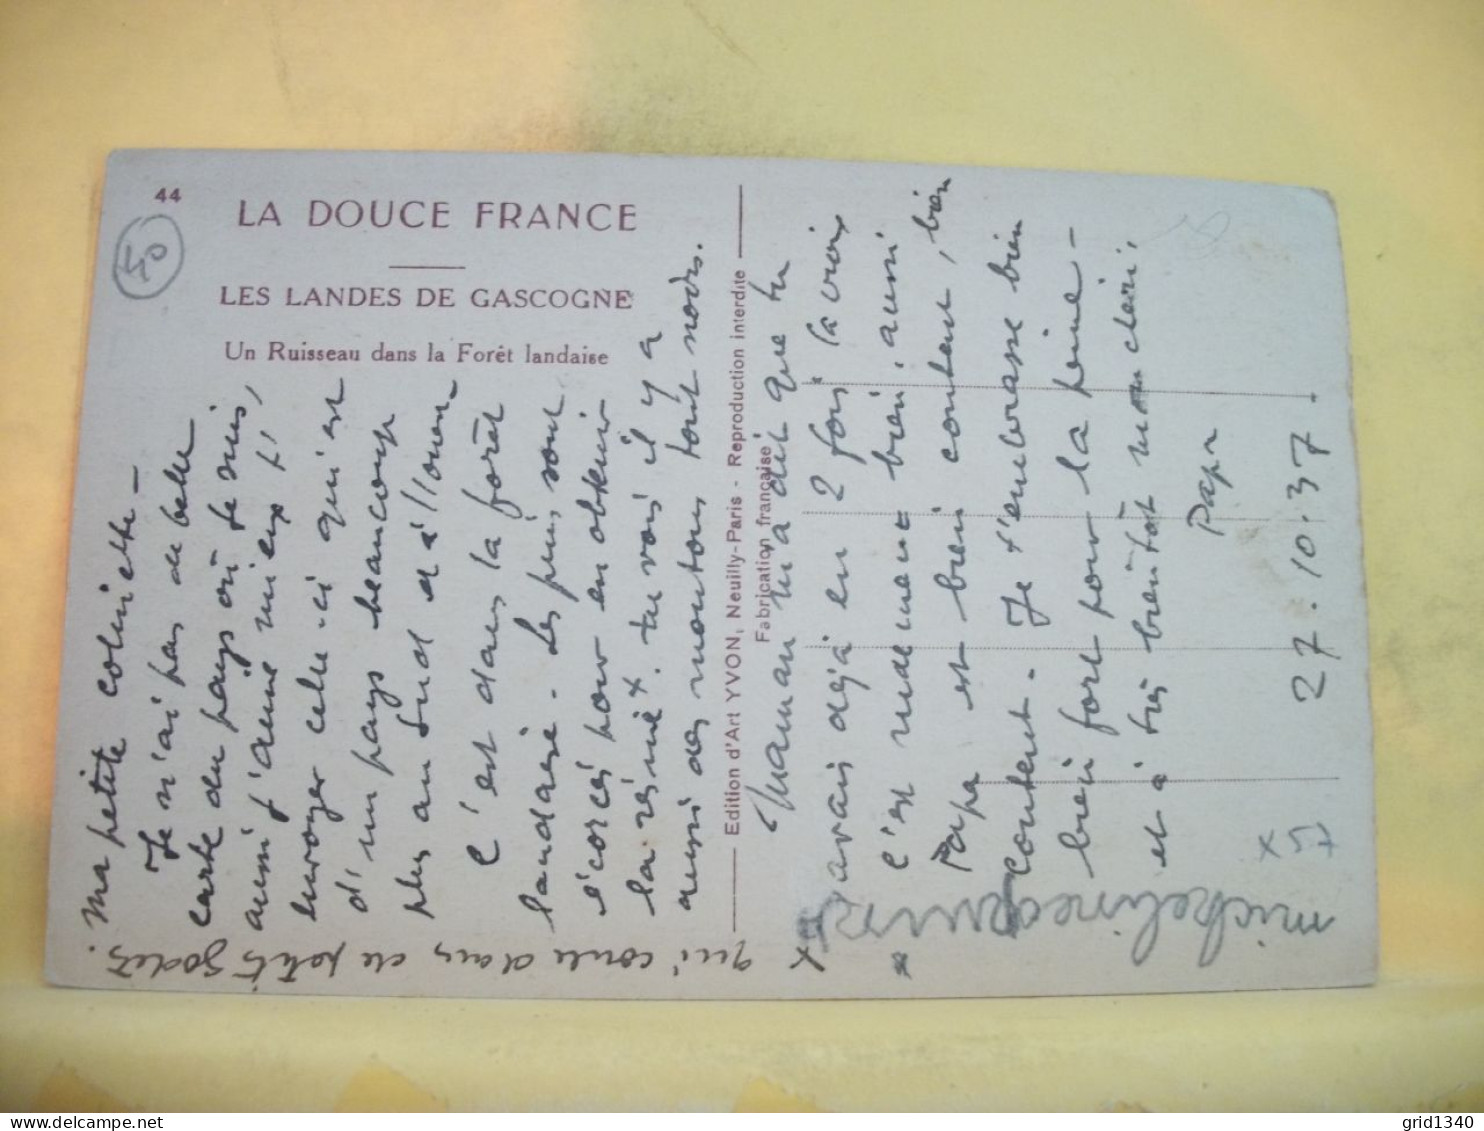 44
50
LA DOUCE FRANCE
LES LANDES DE GASCOGNE
Un Ruisseau dans la Forêt landaise
Ma petite colinette -
Je n'ai pas de belle
carte du pays où je suis,
aussi j'aime mieux t'
envoyer celle-ci qui est
d'un pays beaucoup
plus au sud et à l'ouest
C'est dans la forêt
landaise. Les pins sont
écorcés pour en obtenir
la résine x. tu vois il y a
aussi des moutons tout noirs.
qui coule dans de petits godets.
Edition d'Art YVON, Neuilly-Paris - Reproduction interdite
Fabrication française
Maman m'a dit que tu
avais déjà eu 2 fois la croix
c'est vraiment bien, aussi
Papa est bien content, bien
content. Je t'embrasse bien
bien fort pour la peine -
et à très bientôt mon chéri,
Papa
27.10.37
x
micheline
x
grid1340